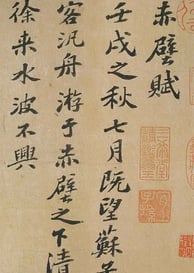 赤壁賦
壬戌之秋七月既望蘇子
客泛舟游于赤壁之下清
徐来水波不興